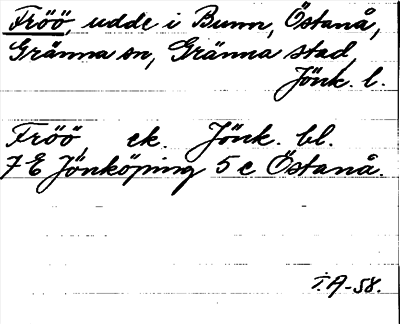 Fröö, udde i Bunn, Östanå,
Gränna sn, Gränna stad,
Jönk. l.
Fröö, ek. Jönk. bl.
7 E Jönköping 5 c Östanå.
I.A-58.